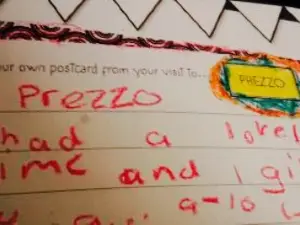 your own postcard from your visit to...
PREZZO
Prezzo
had a lovel
ime and I gi
a-10